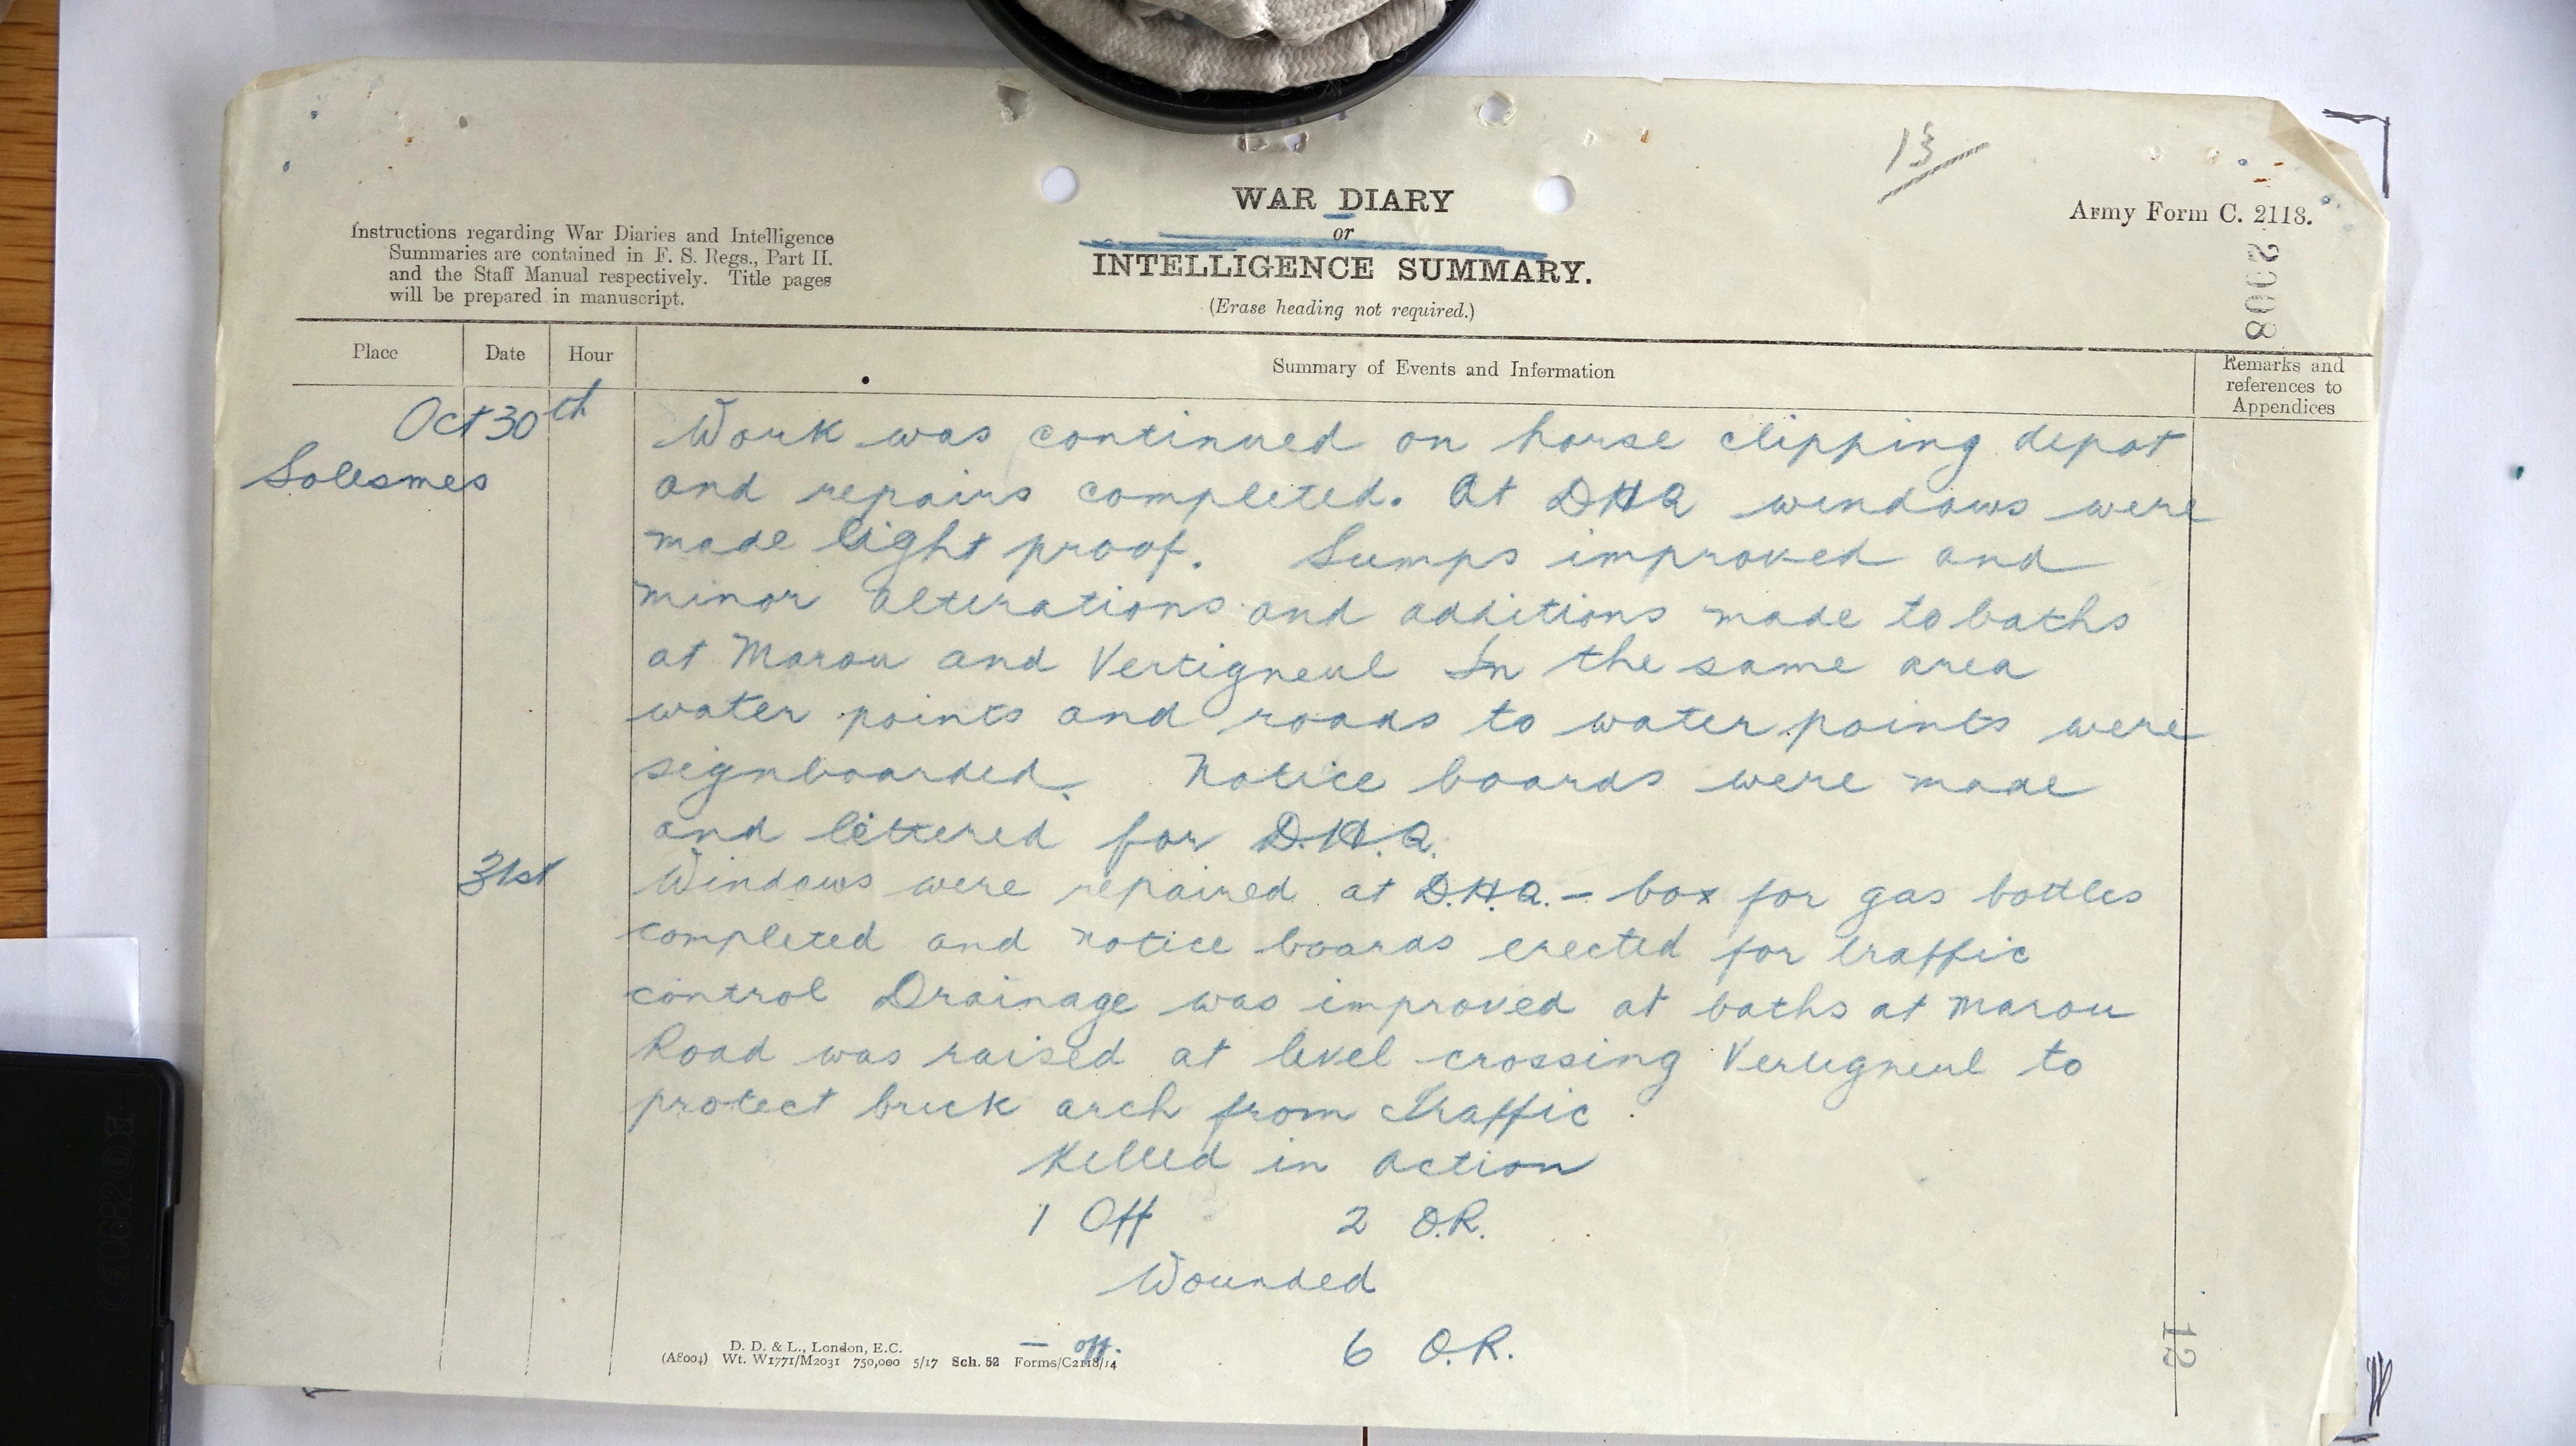 13
WAR DIARY
or
INTELLIGENCE SUMMARY.
(Erase heading not required.)
Army Form C. 2118.
2008
Instructions regarding War Diaries and Intelligence
Summaries are contained in F. S. Regs., Part II.
and the Staff Manual respectively. Title pages
will be prepared in manuscript.
Place Date Hour Summary of Events and Information Remarks and
references to
Appendices
Oct 30th Work was continued on horse clipping depot
Solesmes and repairs completed. At DHQ windows were
made light proof. Sumps improved and
minor alterations and additions made to baths
at Marou and Vertigneul In the same area
water points and roads to water points were
signboarded. Notice boards were made
and lettered for D.H.Q.
31st Windows were repaired at D.H.Q. - box for gas bottles
completed and notice boards erected for traffic
control Drainage was improved at baths at Marou
Road was raised at level crossing Vertigneul to
protect brick arch from Traffic
Killed in action
1 Off 2 O.R.
Wounded
— off. 6 O.R.
D. D. & L., London, E.C.
(A8004) Wt. W1771/M2031 750,000 5/17 Sch. 52 Forms/C2118/14
12